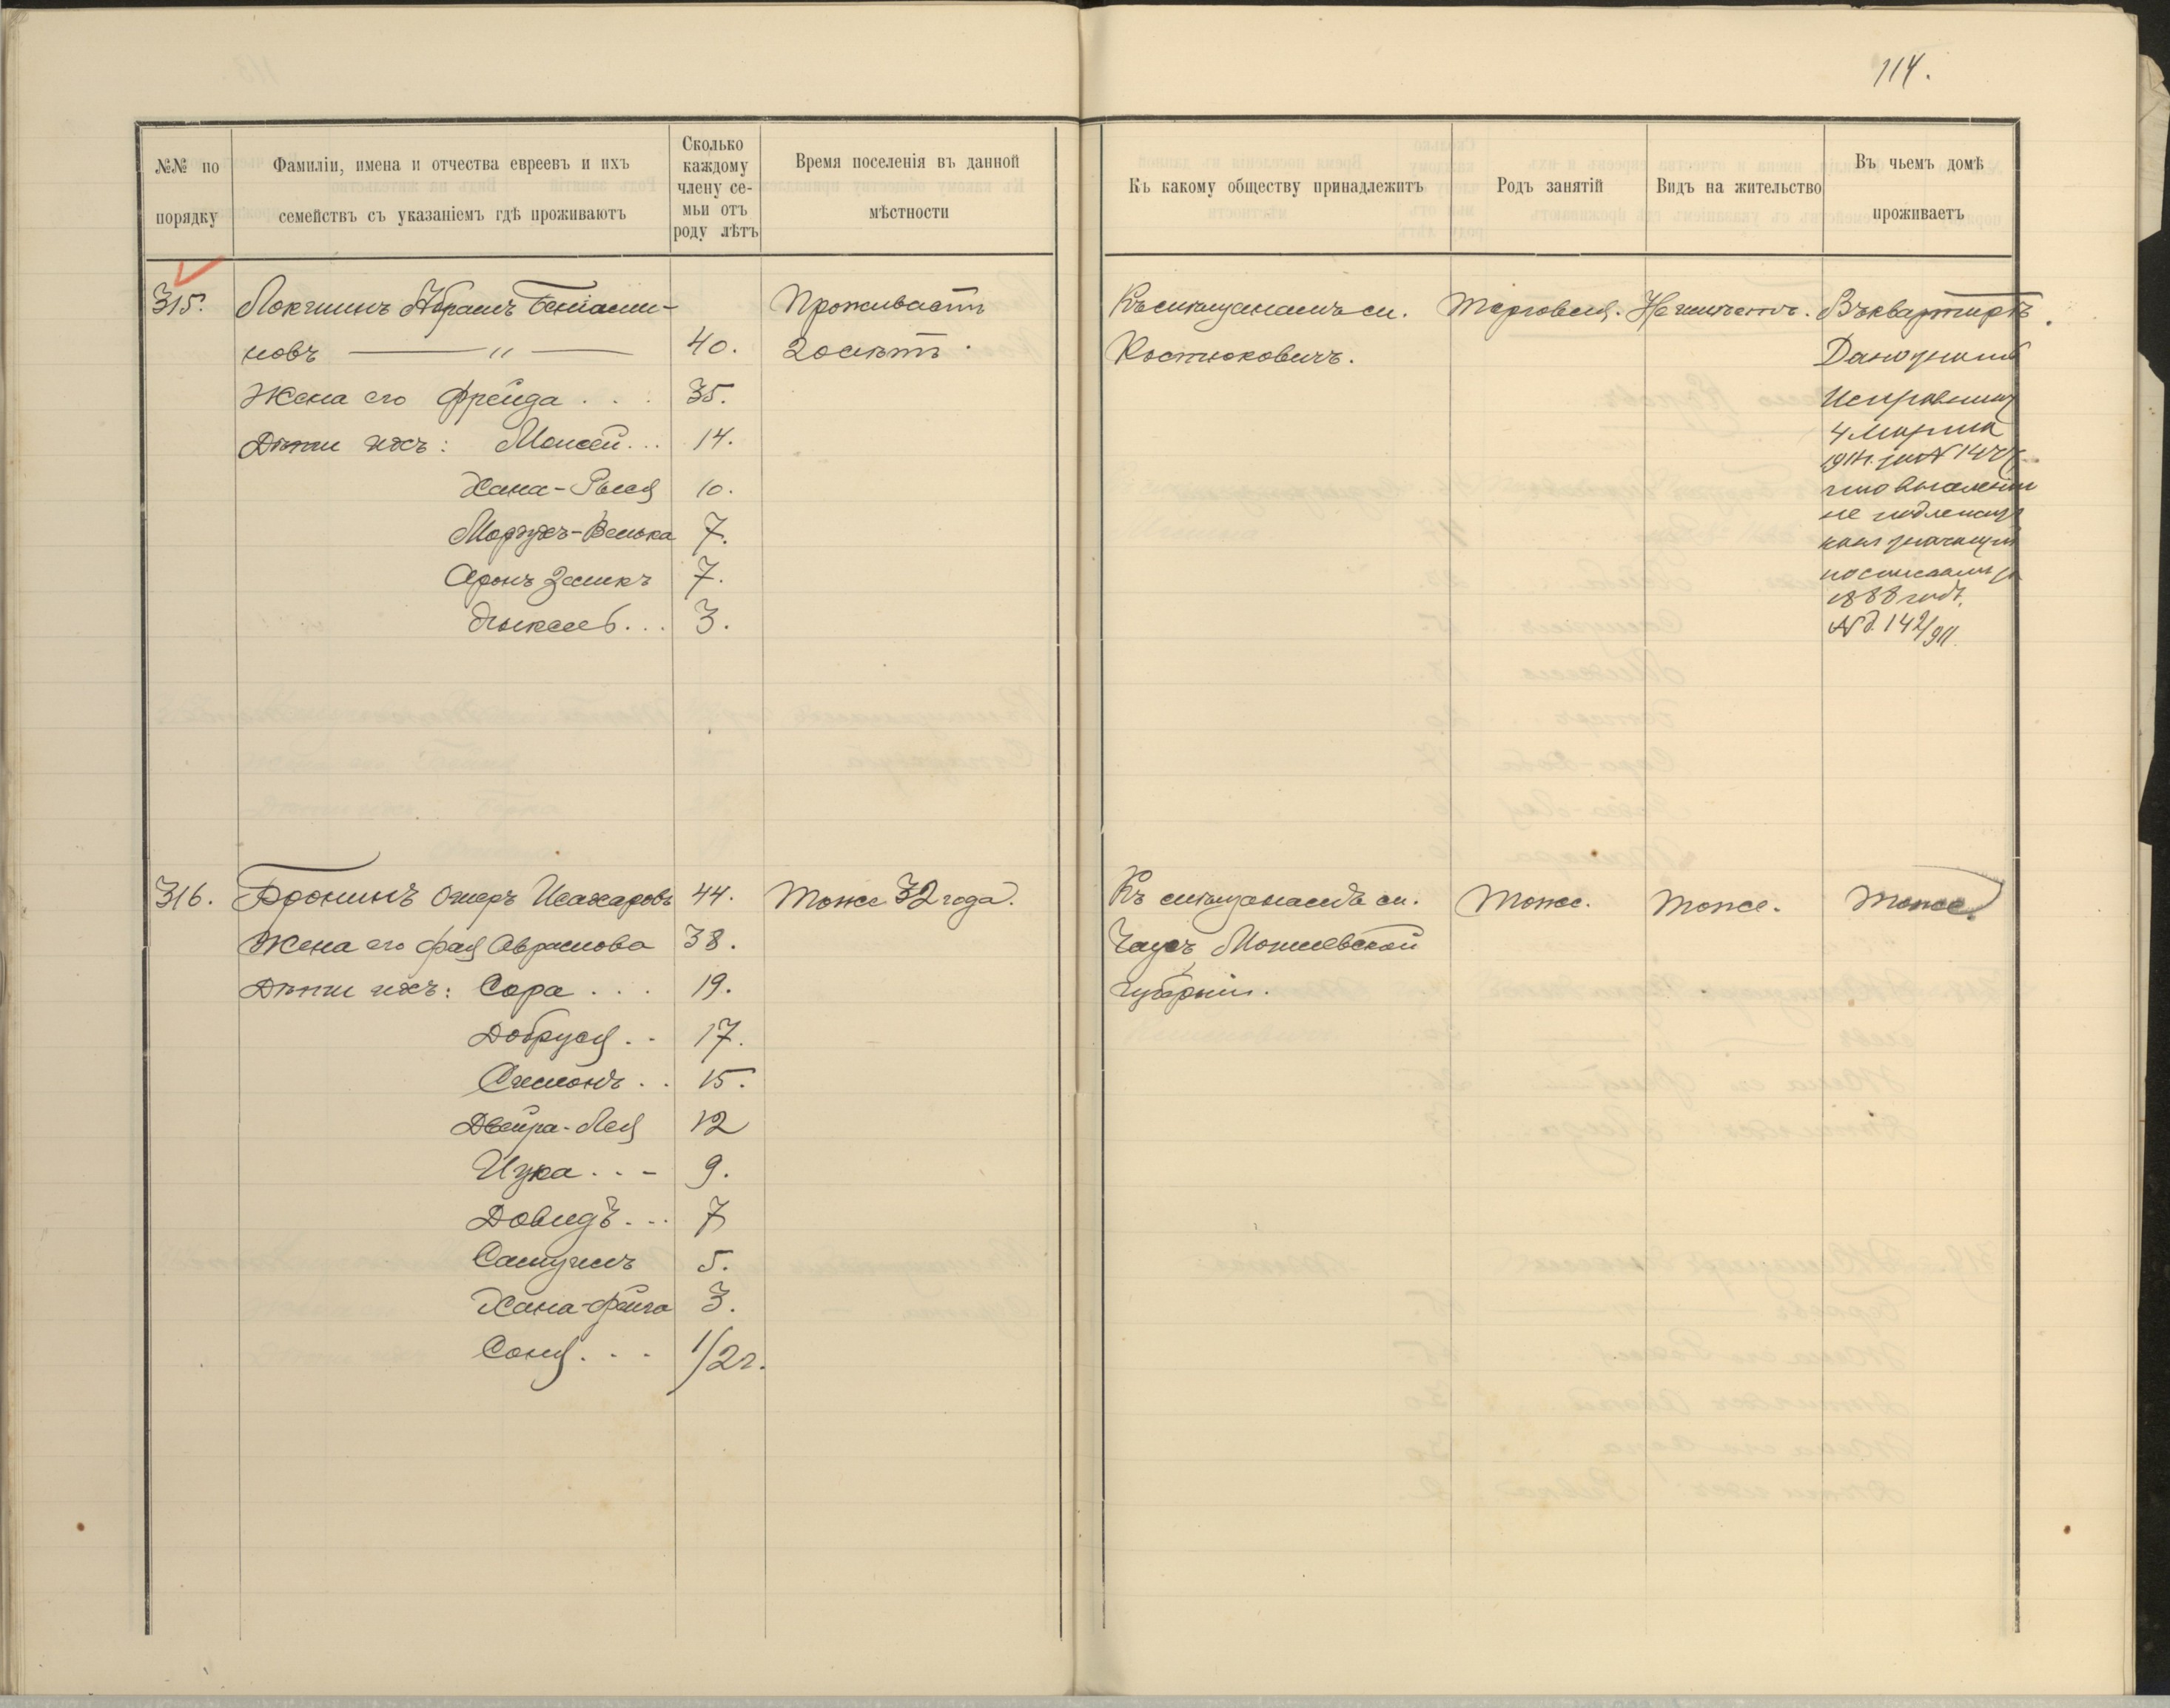 114.
№№ по
порядку
Фамиліи, имена и отчества евреевъ и ихъ
семействъ съ указаніемъ гдѣ проживаютъ
Сколько
каждому
члену се-
мьи отъ
роду лѣтъ
Время поселенія въ данной
мѣстности
Къ какому обществу принадлежитъ
Родъ занятій
Видъ на жительство
Въ чьемъ домѣ
проживаетъ
315. Локшинъ Абрамъ Беніами- Проживаетъ Къ мѣщанамъ м. Торговля. Не имѣетъ. Въ квартирѣ.
новъ — " — 40. 20 лѣтъ. Костюковичъ.
Жена его Фрейда . . . 35.
Дѣти ихъ: Моисей . . . 14.
Хана-Рися 10.
Мордухъ-Велька 7.
Аронъ Залмкъ 7.
. . . 3.
Дано
Исправник
4 Марта
1911 г. за № 144
что выселенію
не подлежит
как значущ
по спискам
1888 год.
№ д. 142/911.
316. Бронинъ Ошеръ Исахаровъ 44. Тоже 32 года. Къ мѣщанамъ м. Тоже. Тоже. Тоже.
Жена его Фая Абрамова 38. Чаусъ Могилевской
Дѣти ихъ: Сора . . . 19. губерніи.
Добруся . . 17.
Симонъ . . 15.
Двейра-Лея 12
Ицка . . - 9.
Довидъ . . . 7
Самуилъ 5.
Хана-Фейга 3.
Соня . . . 1/2 г.